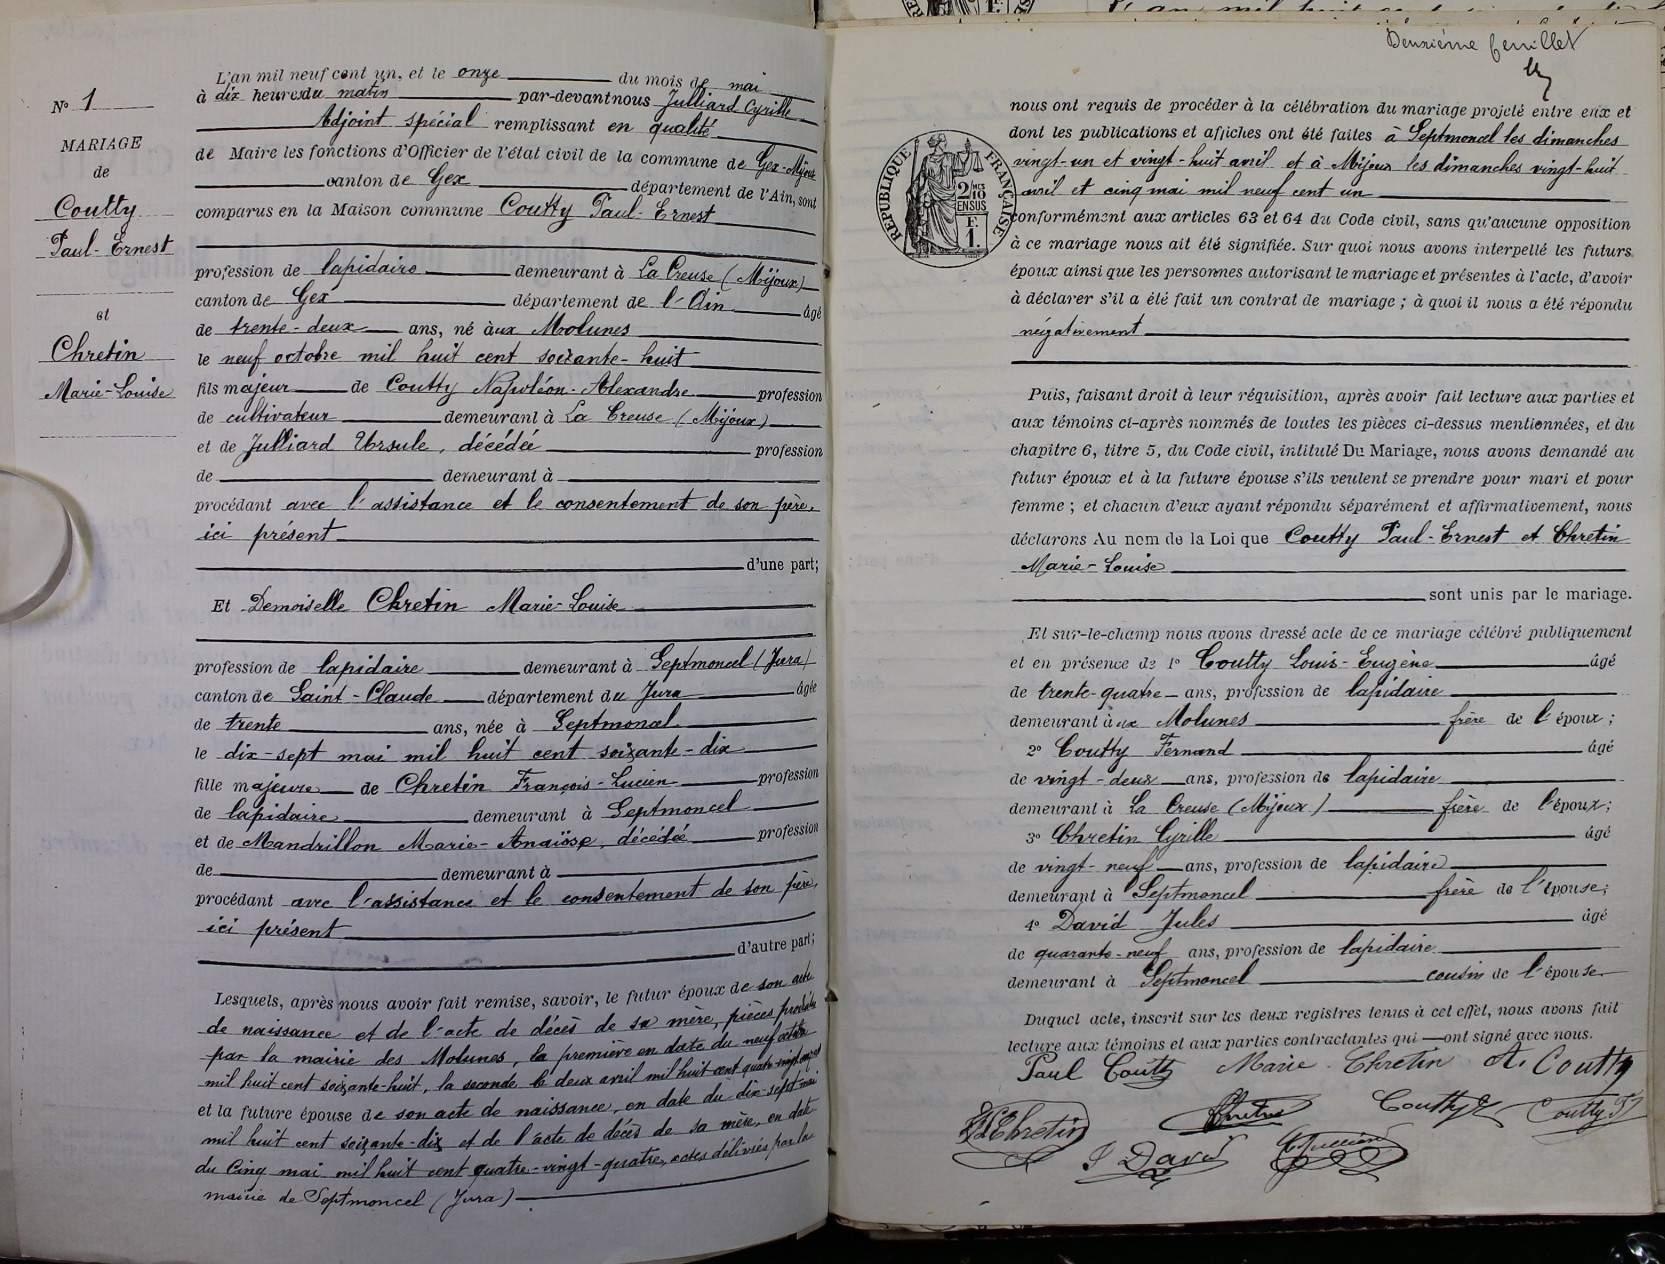 N° 1
MARIAGE
de
Coutty
Paul-Ernest
et
Chretin
Marie-Louise
L'an mil neuf cent un, et le onze du mois de mai
à dix heures du matin par-devant nous Julliard Cyrille
Adjoint spécial remplissant en qualité
de Maire les fonctions d'Officier de l'état civil de la commune de Gex-Mijoux
canton de Gex département de l'Ain, sont
comparus en la Maison commune Coutty Paul-Ernest
profession de lapidaire demeurant à La Creuse (Mijoux)
canton de Gex département de l'Ain âgé
de trente-deux ans, né àux Molunes
le neuf octobre mil huit cent soixante-huit
fils majeur de Coutty Napoléon-Alexandre profession
de cultivateur demeurant à La Creuse (Mijoux)
et de Julliard Ursule, décédée profession
de demeurant à
procédant avec l'assistance et le consentement de son père,
ici présent
d'une part;
Et Demoiselle Chretin Marie-Louise
profession de lapidaire demeurant à Septmoncel (Jura)
canton de Saint-Claude département du Jura âgée
de trente ans, née à Septmoncel
le dix-sept mai mil huit cent soixante-dix
fille majeure de Chretin François-Lucien profession
de lapidaire demeurant à Septmoncel
et de Mandrillon Marie-Anaïse, décédée profession
de demeurant à
procédant avec l'assistance et le consentement de son père,
ici présent
d'autre part;
Lesquels, après nous avoir fait remise, savoir, le futur époux de son acte
de naissance et de l'acte de décès de sa mère, pièces produites
par la mairie des Molunes, la première en date du neuf octobre
mil huit cent soixante-huit, la seconde le deux avril mil huit cent quatre-vingt
et la future épouse de son acte de naissance, en date du dix-sept mai
mil huit cent soixante-dix et de l'acte de décès de sa mère, en date
du cinq mai mil huit cent quatre-vingt-quatre, actes délivrés par la
mairie de Septmoncel (Jura)
Deuxième feuillet
RÉPUBLIQUE FRANÇAISE
2/10 MES
EN SUS
F.
1.
nous ont requis de procéder à la célébration du mariage projeté entre eux et
dont les publications et affiches ont été faites à Septmoncel les dimanches
vingt-un et vingt-huit avril et à Mijoux les dimanches vingt-huit
avril et cinq mai mil neuf cent un
conformément aux articles 63 et 64 du Code civil, sans qu'aucune opposition
à ce mariage nous ait été signifiée. Sur quoi nous avons interpellé les futurs
époux ainsi que les personnes autorisant le mariage et présentes à l'acte, d'avoir
à déclarer s'il a été fait un contrat de mariage; à quoi il nous a été répondu
négativement
Puis, faisant droit à leur réquisition, après avoir fait lecture aux parties et
aux témoins ci-après nommés de toutes les pièces ci-dessus mentionnées, et du
chapitre 6, titre 5, du Code civil, intitulé Du Mariage, nous avons demandé au
futur époux et à la future épouse s'ils veulent se prendre pour mari et pour
femme; et chacun d'eux ayant répondu séparément et affirmativement, nous
déclarons Au nom de la Loi que Coutty Paul-Ernest et Chretin
Marie-Louise
sont unis par le mariage.
Et sur-le-champ nous avons dressé acte de ce mariage célébré publiquement
et en présence de 1° Coutty Louis-Eugène âgé
de trente-quatre ans, profession de lapidaire
demeurant àux Molunes frère de l'époux;
2° Coutty Fernand âgé
de vingt-deux ans, profession de lapidaire
demeurant à La Creuse (Mijoux) frère de l'époux;
3° Chretin Cyrille âgé
de vingt-neuf ans, profession de lapidaire
demeurant à Septmoncel frère de l'épouse;
4° David Jules âgé
de quarante-neuf ans, profession de lapidaire
demeurant à Septmoncel cousin de l'épouse
Duquel acte, inscrit sur les deux registres tenus à cet effet, nous avons fait
lecture aux témoins et aux parties contractantes qui ont signé avec nous.
Paul Coutty Marie Chretin A. Coutty
Chretin Coutty Coutty F
J David